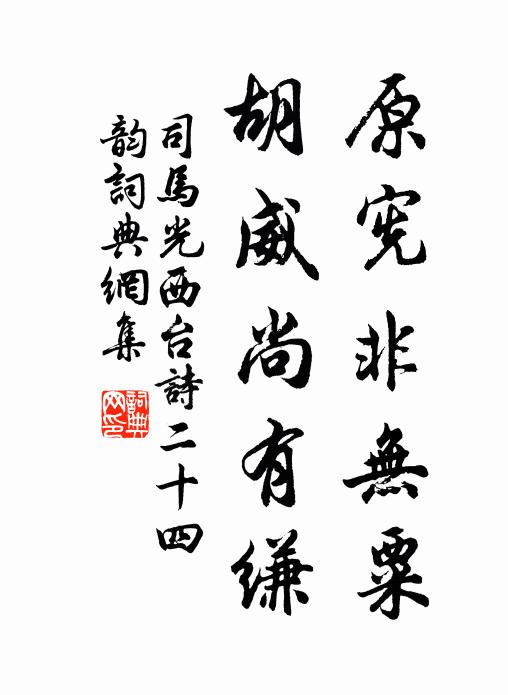 原宪非無粟
胡威尚有缣
司馬光西台詩二十四
韵詞典網集
詞典網印